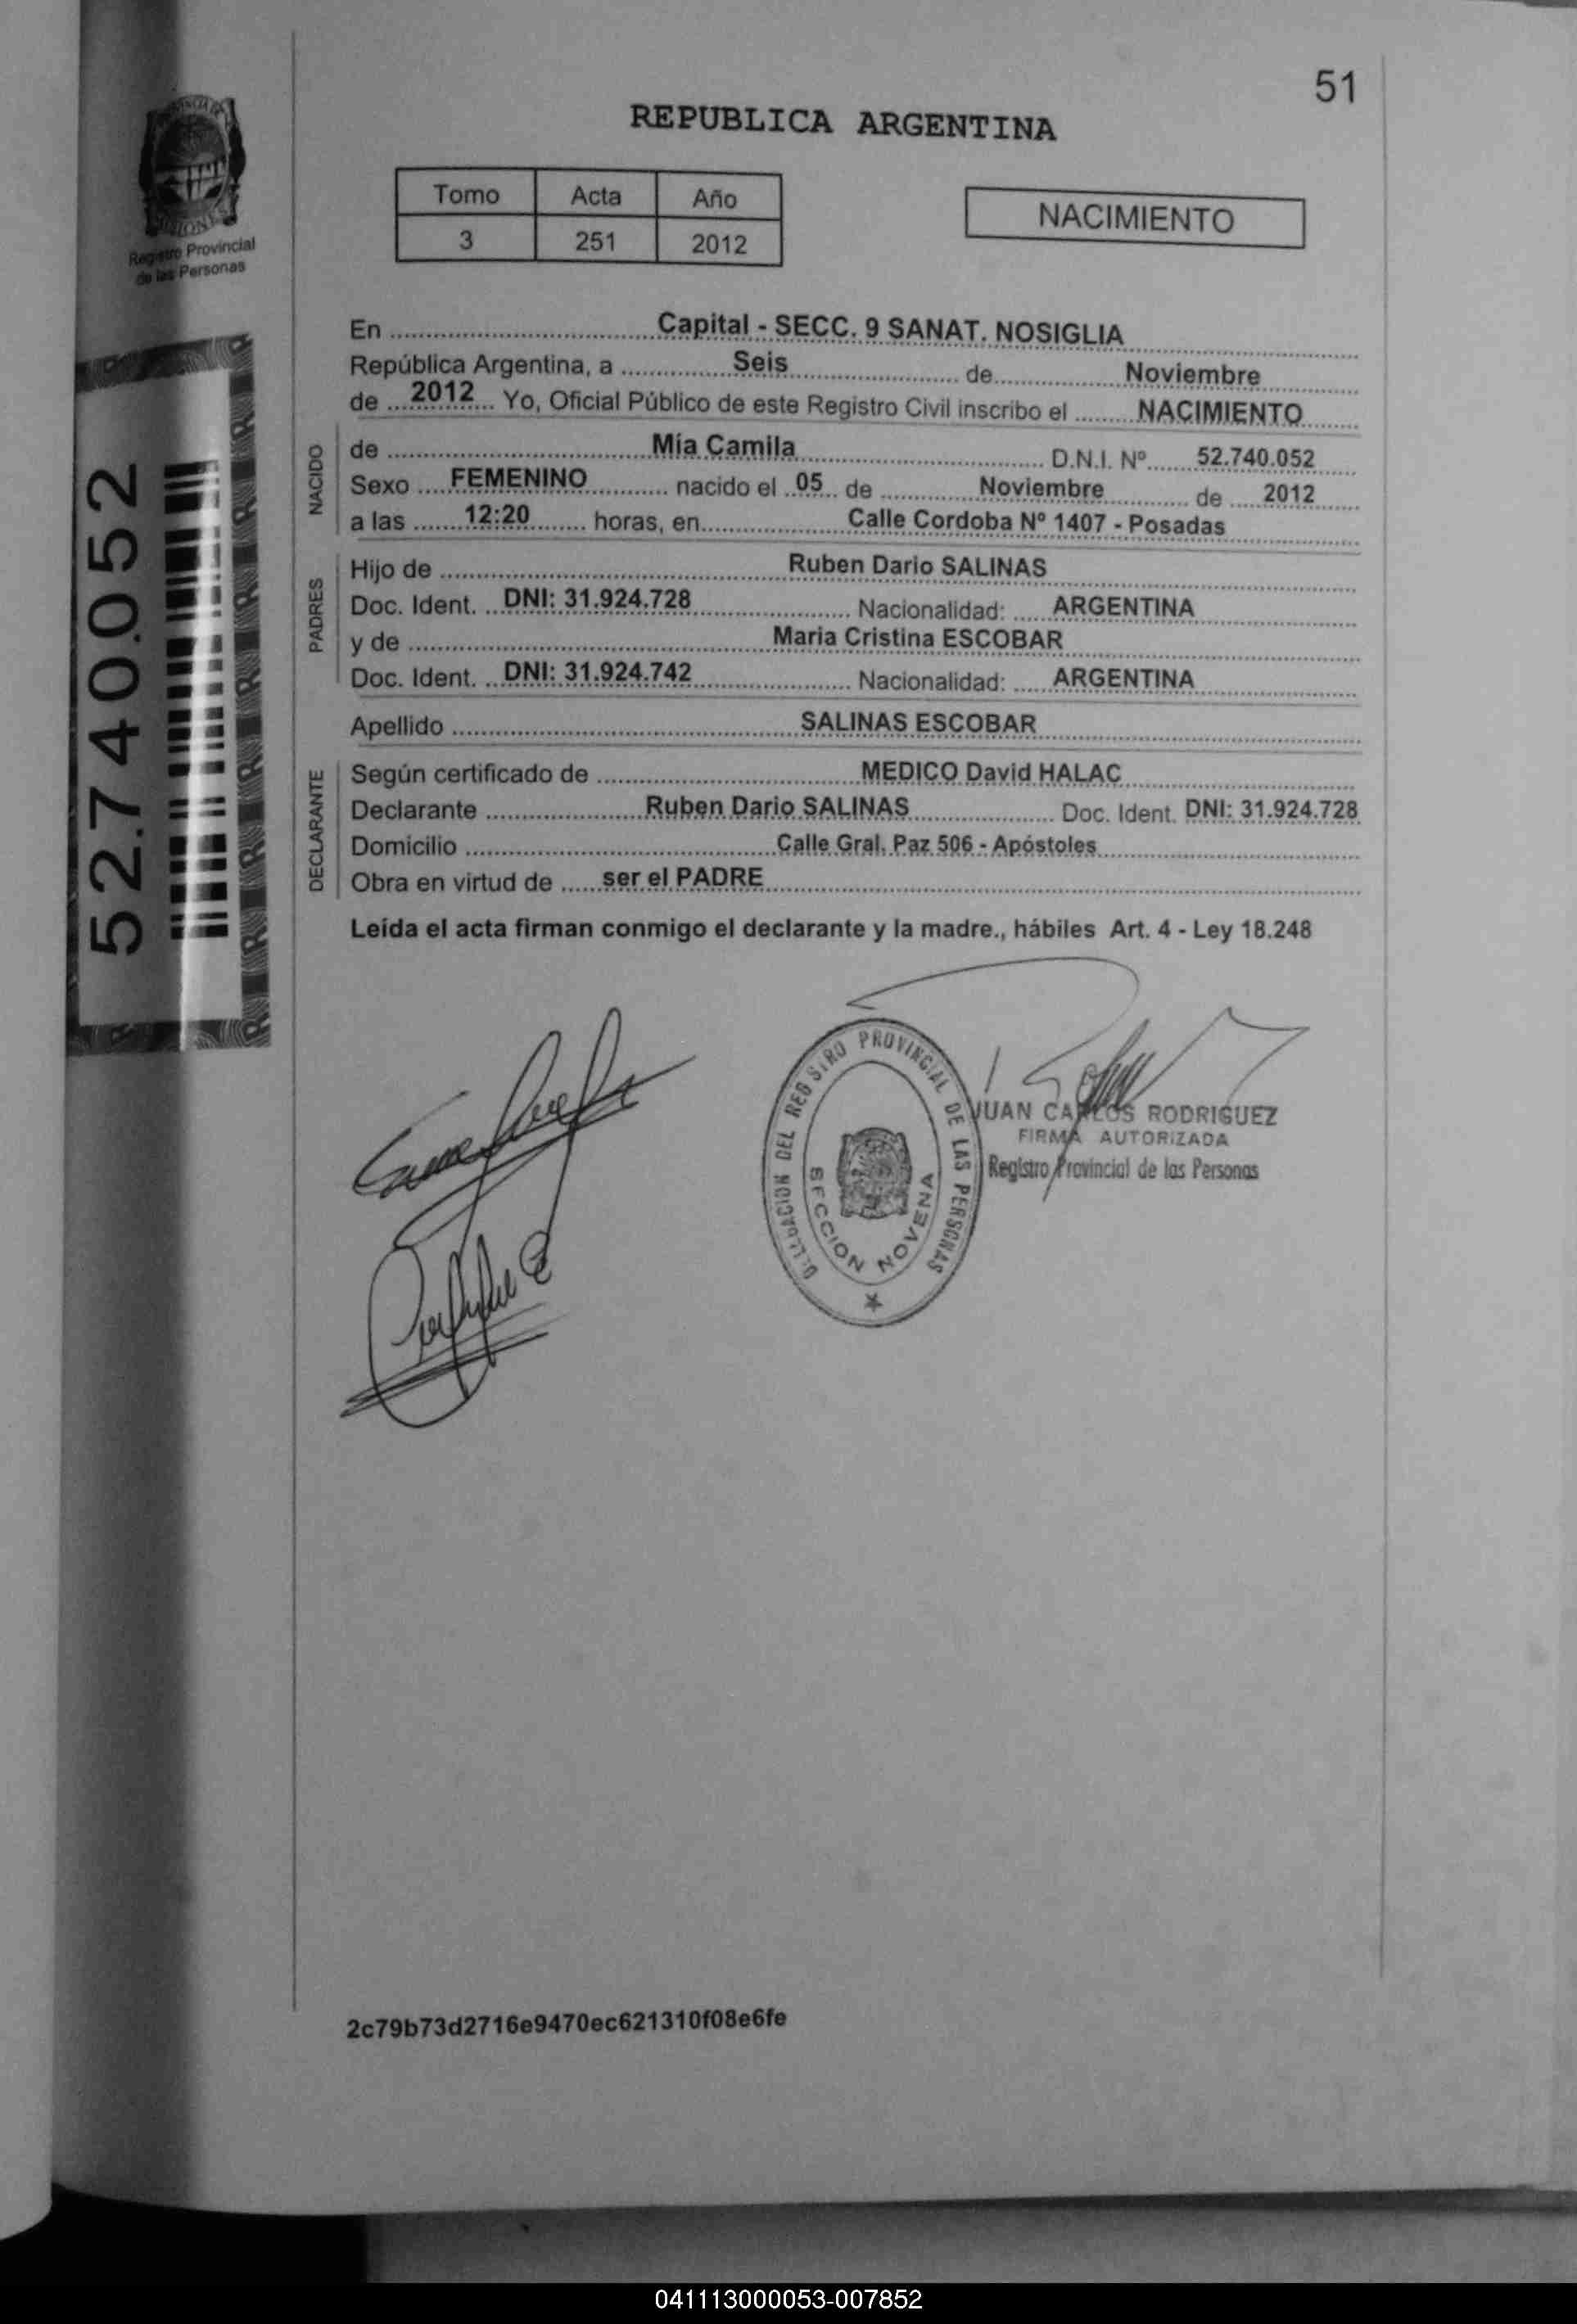 51
REPUBLICA ARGENTINA
Tomo Acta Año
3 251 2012
NACIMIENTO
Registro Provincial
de las Personas
52.740.052
En Capital - SECC. 9 SANAT. NOSIGLIA
República Argentina, a Seis de Noviembre
de 2012 Yo, Oficial Público de este Registro Civil inscribo el NACIMIENTO
NACIDO
de Mía Camila D.N.I. Nº 52.740.052
Sexo FEMENINO nacido el 05 de Noviembre de 2012
a las 12:20 horas, en Calle Cordoba Nº 1407 - Posadas
PADRES
Hijo de Ruben Dario SALINAS
Doc. Ident. DNI: 31.924.728 Nacionalidad: ARGENTINA
y de Maria Cristina ESCOBAR
Doc. Ident. DNI: 31.924.742 Nacionalidad: ARGENTINA
Apellido SALINAS ESCOBAR
DECLARANTE
Según certificado de MEDICO David HALAC
Declarante Ruben Dario SALINAS Doc. Ident. DNI: 31.924.728
Domicilio Calle Gral. Paz 506 - Apóstoles
Obra en virtud de ser el PADRE
Leída el acta firman conmigo el declarante y la madre., hábiles Art. 4 - Ley 18.248
DELEGACION DEL REGISTRO PROVINCIAL DE LAS PERSONAS
SECCION NOVENA
JUAN CARLOS RODRIGUEZ
FIRMA AUTORIZADA
Registro Provincial de las Personas
2c79b73d2716e9470ec621310f08e6fe
041113000053-007852